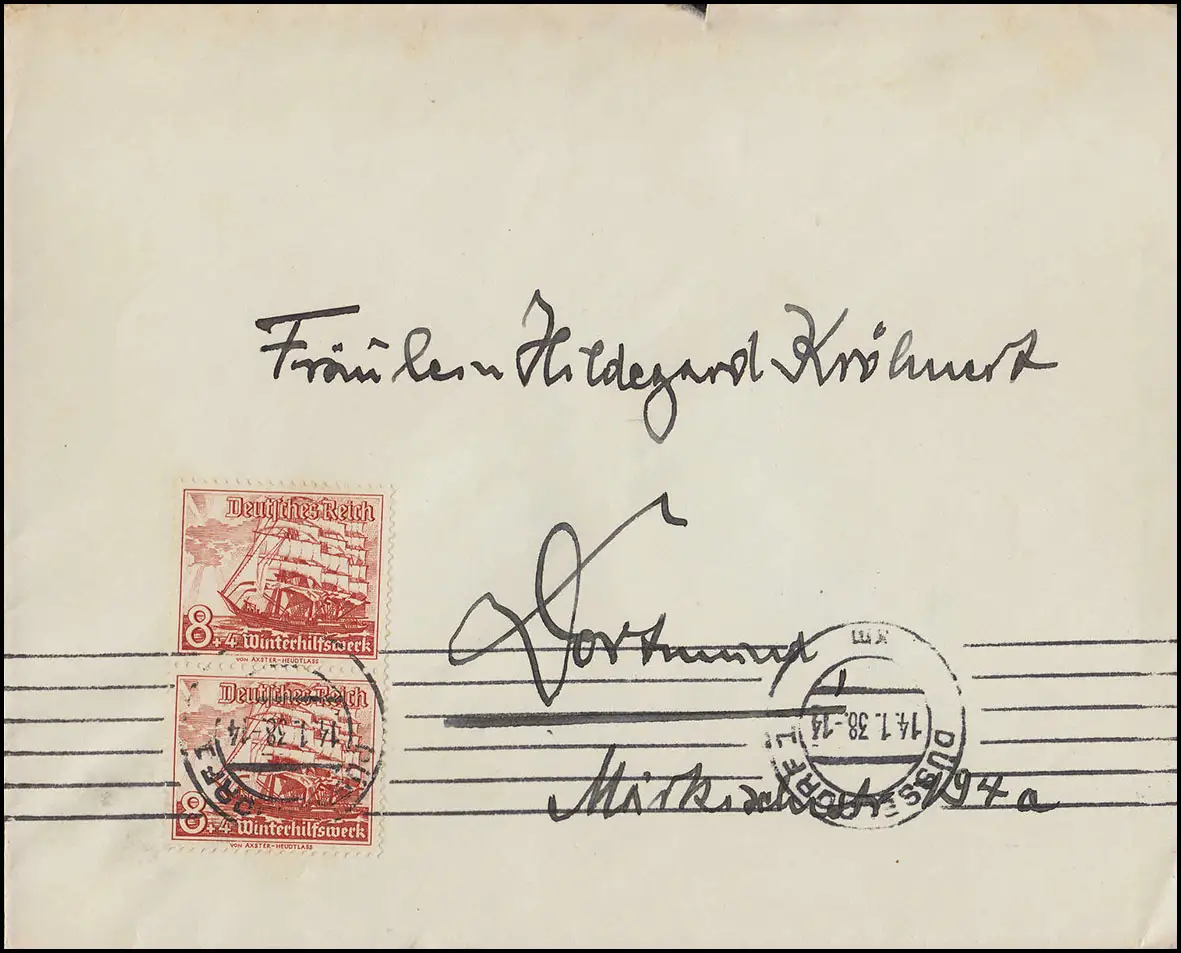 Fräulein Hildegard Kröhnert
Deutsches Reich
8+4 Winterhilfswerk
VON AXSTER-HEUDTLASS
Dortmund
Deutsches Reich
8+4 Winterhilfswerk
VON AXSTER-HEUDTLASS
14.1.38-14
DÜSSELDORF
14.1.38-14
Märkischestr 194a